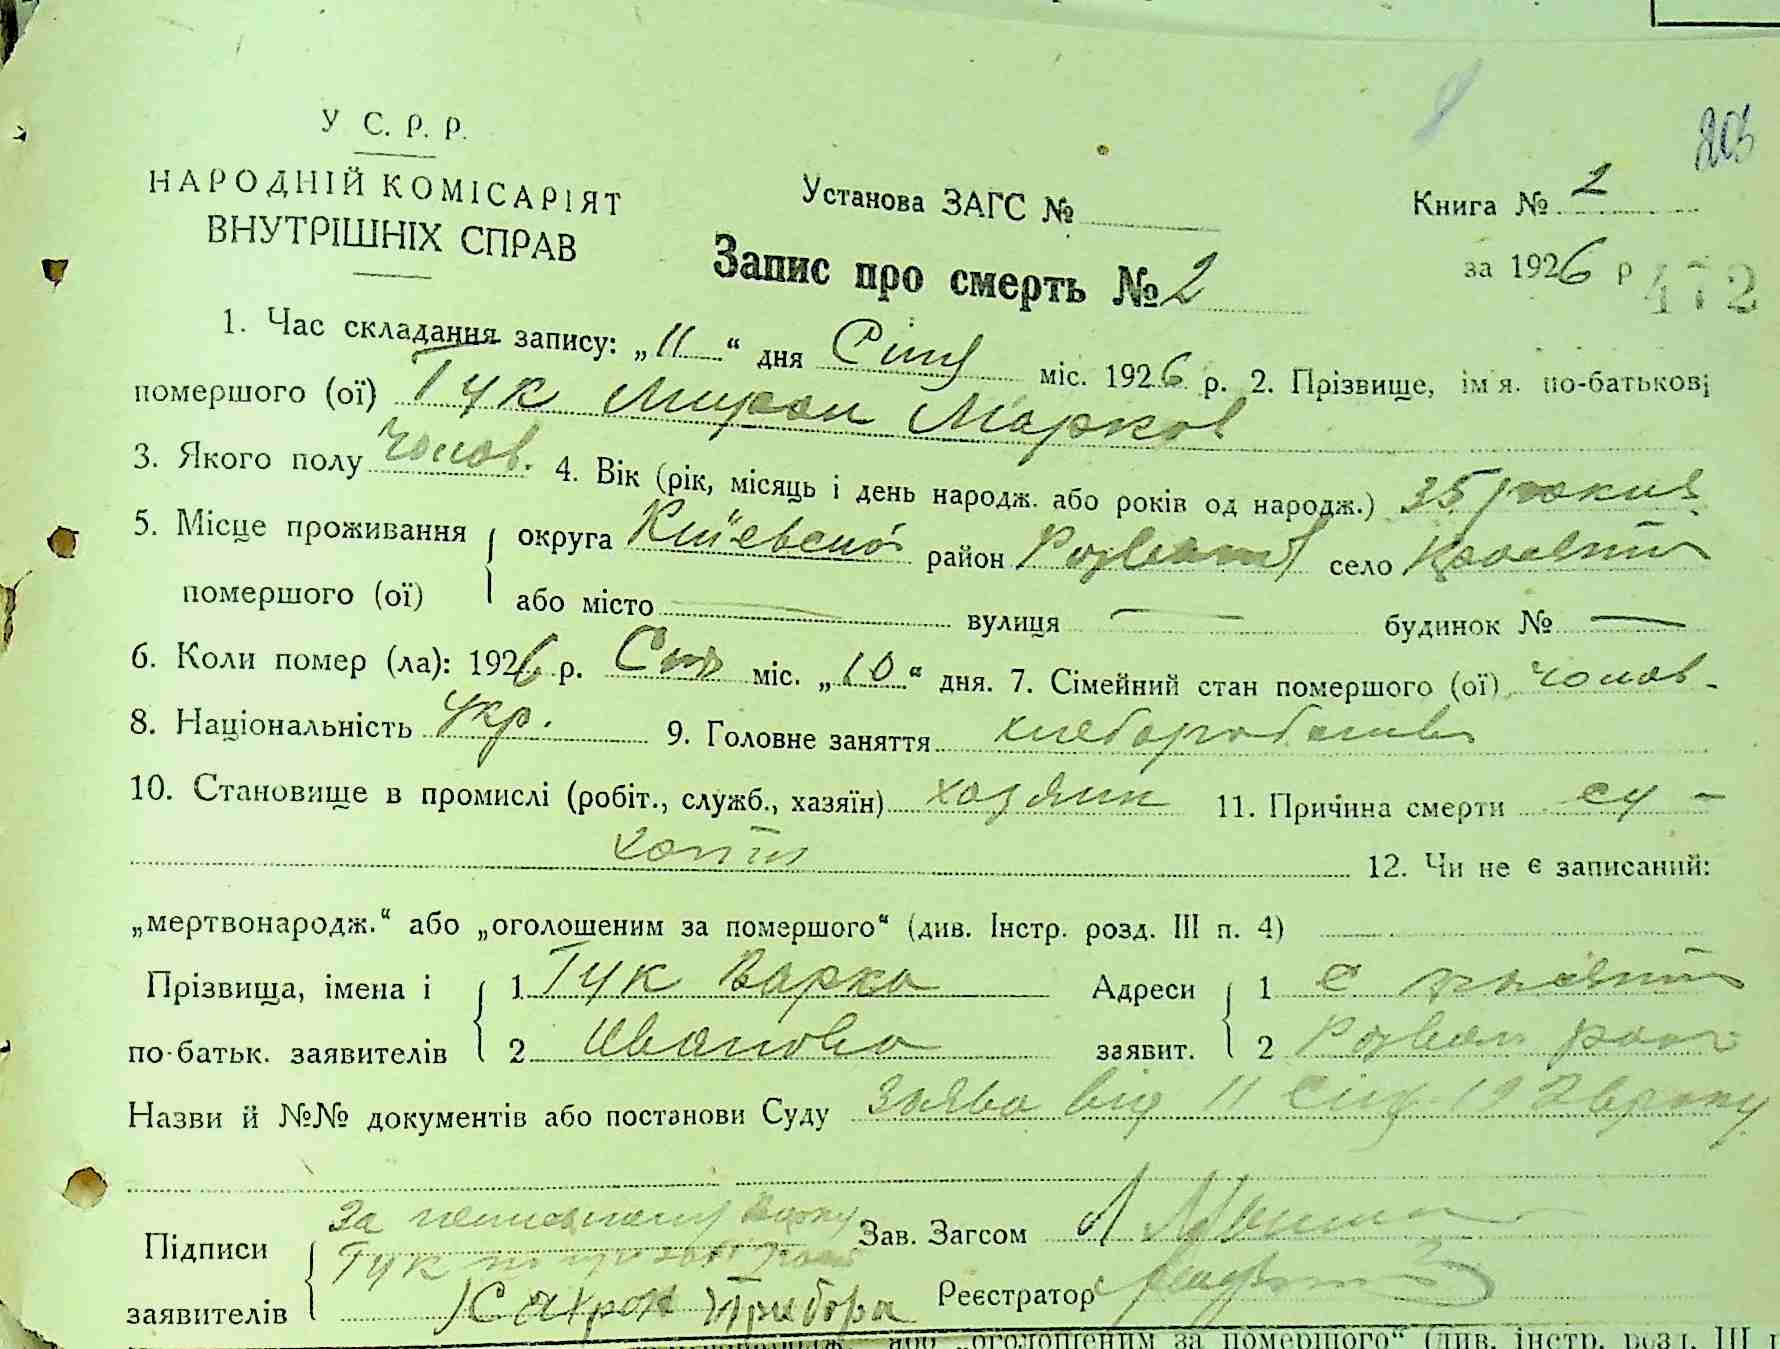 203
У С. Р. Р.
НАРОДНІЙ КОМІСАРІЯТ
ВНУТРІШНІХ СПРАВ
Установа ЗАГС №
Книга № 2
Запис про смерть № 2
за 1926 р
472
1. Час складання запису: „11“ дня Січня міс. 1926 р. 2. Прізвище, ім'я. по-батькові
помершого (ої) Гук Мирон Марков
3. Якого полу чолов. 4. Вік (рік, місяць і день народж. або років од народж.) 35 років
5. Місце проживання округа Київської район село
помершого (ої) або місто — вулиця — будинок № —
6. Коли помер (ла): 1926 р. Січ міс. „10“ дня. 7. Сімейний стан помершого (ої) чолов-
8. Національність Укр. 9. Головне заняття хлеборобств
10. Становище в промислі (робіт., служб., хазяїн) хозяин 11. Причина смерти су-
хоти 12. Чи не є записаний:
„мертвонародж.“ або „оголошеним за помершого“ (див. Інстр. розд. III п. 4)
Прізвища, імена і 1 Гук Варка Адреси 1 с
по-батьк. заявителів 2 Иванова заявит. 2 Розваж
Назви й №№ документів або постанови Суду Заява від 11 Січ. 1926 року
Підписи За неписьмену Варку Зав. Загсом
Гук
заявителів Реєстратор
або „оголошеним за помершого“ (див. інстр. розд. III п